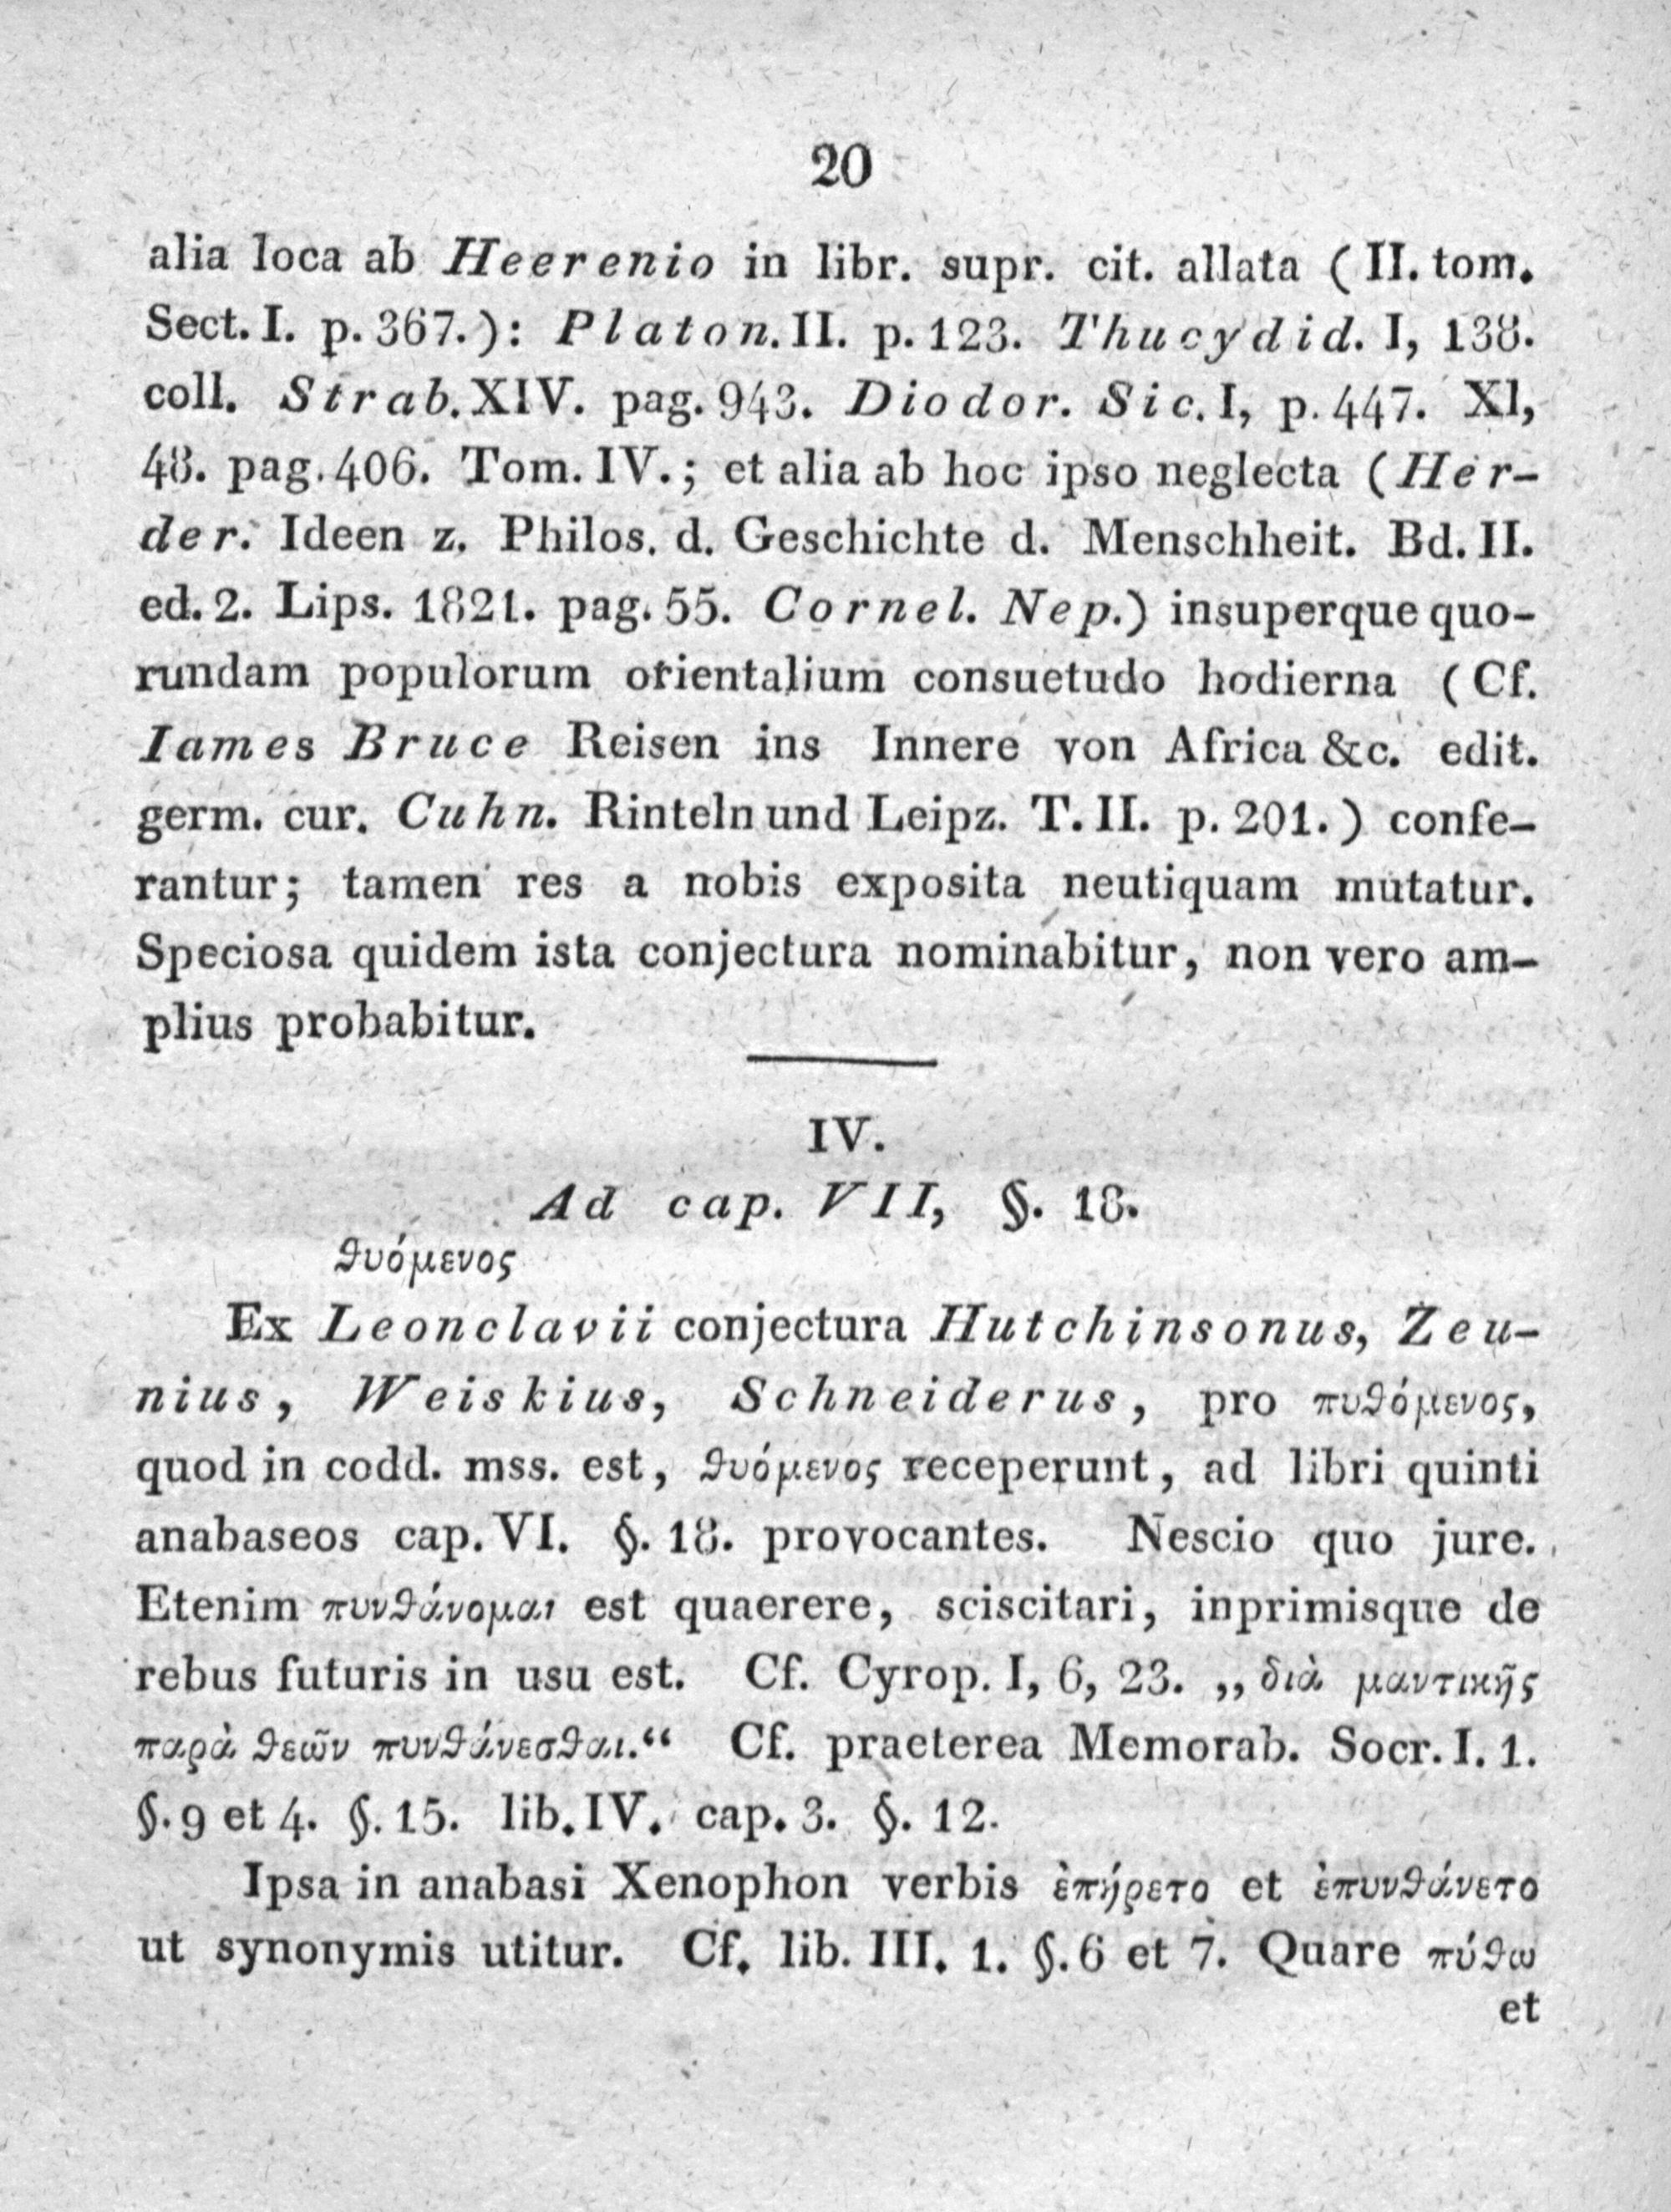 20
alia loca ab Heerenio in libr. supr. cit. allata (II. tom.
Sect. I. p. 367.): Platon. II. p. 123. Thucydid. I, 138.
coll. Strab. XIV. pag. 943. Diodor. Sic. I, p. 447. XI,
48. pag. 406. Tom. IV.; et alia ab hoc ipso neglecta (Her-
der. Ideen z. Philos. d. Geschichte d. Menschheit. Bd. II.
ed. 2. Lips. 1821. pag. 55. Cornel. Nep.) insuperque quo-
rundam populorum orientalium consuetudo hodierna (Cf.
Iames Bruce Reisen ins Innere von Africa &c. edit.
germ. cur. Cuhn. Rinteln und Leipz. T. II. p. 201.) confe-
rantur; tamen res a nobis exposita neutiquam mutatur.
Speciosa quidem ista conjectura nominabitur, non vero am-
plius probabitur.
IV.
Ad cap. VII, §. 18.
ϑυόμενος
Ex Leonclavii conjectura Hutchinsonus, Zeu-
nius, Weiskius, Schneiderus, pro πυϑόμενος,
quod in codd. mss. est, ϑυόμενος receperunt, ad libri quinti
anabaseos cap. VI. §. 18. provocantes. Nescio quo jure.
Etenim πυνϑάνομαι est quaerere, sciscitari, inprimisque de
rebus futuris in usu est. Cf. Cyrop. I, 6, 23. „διὰ μαντικῆς
παρὰ ϑεῶν πυνϑάνεσϑαι.“ Cf. praeterea Memorab. Socr. I. 1.
§. 9 et 4. §. 15. lib. IV. cap. 3. §. 12.
Ipsa in anabasi Xenophon verbis ἐπήρετο et ἐπυνϑάνετο
ut synonymis utitur. Cf. lib. III. 1. §. 6 et 7. Quare πύϑω
et